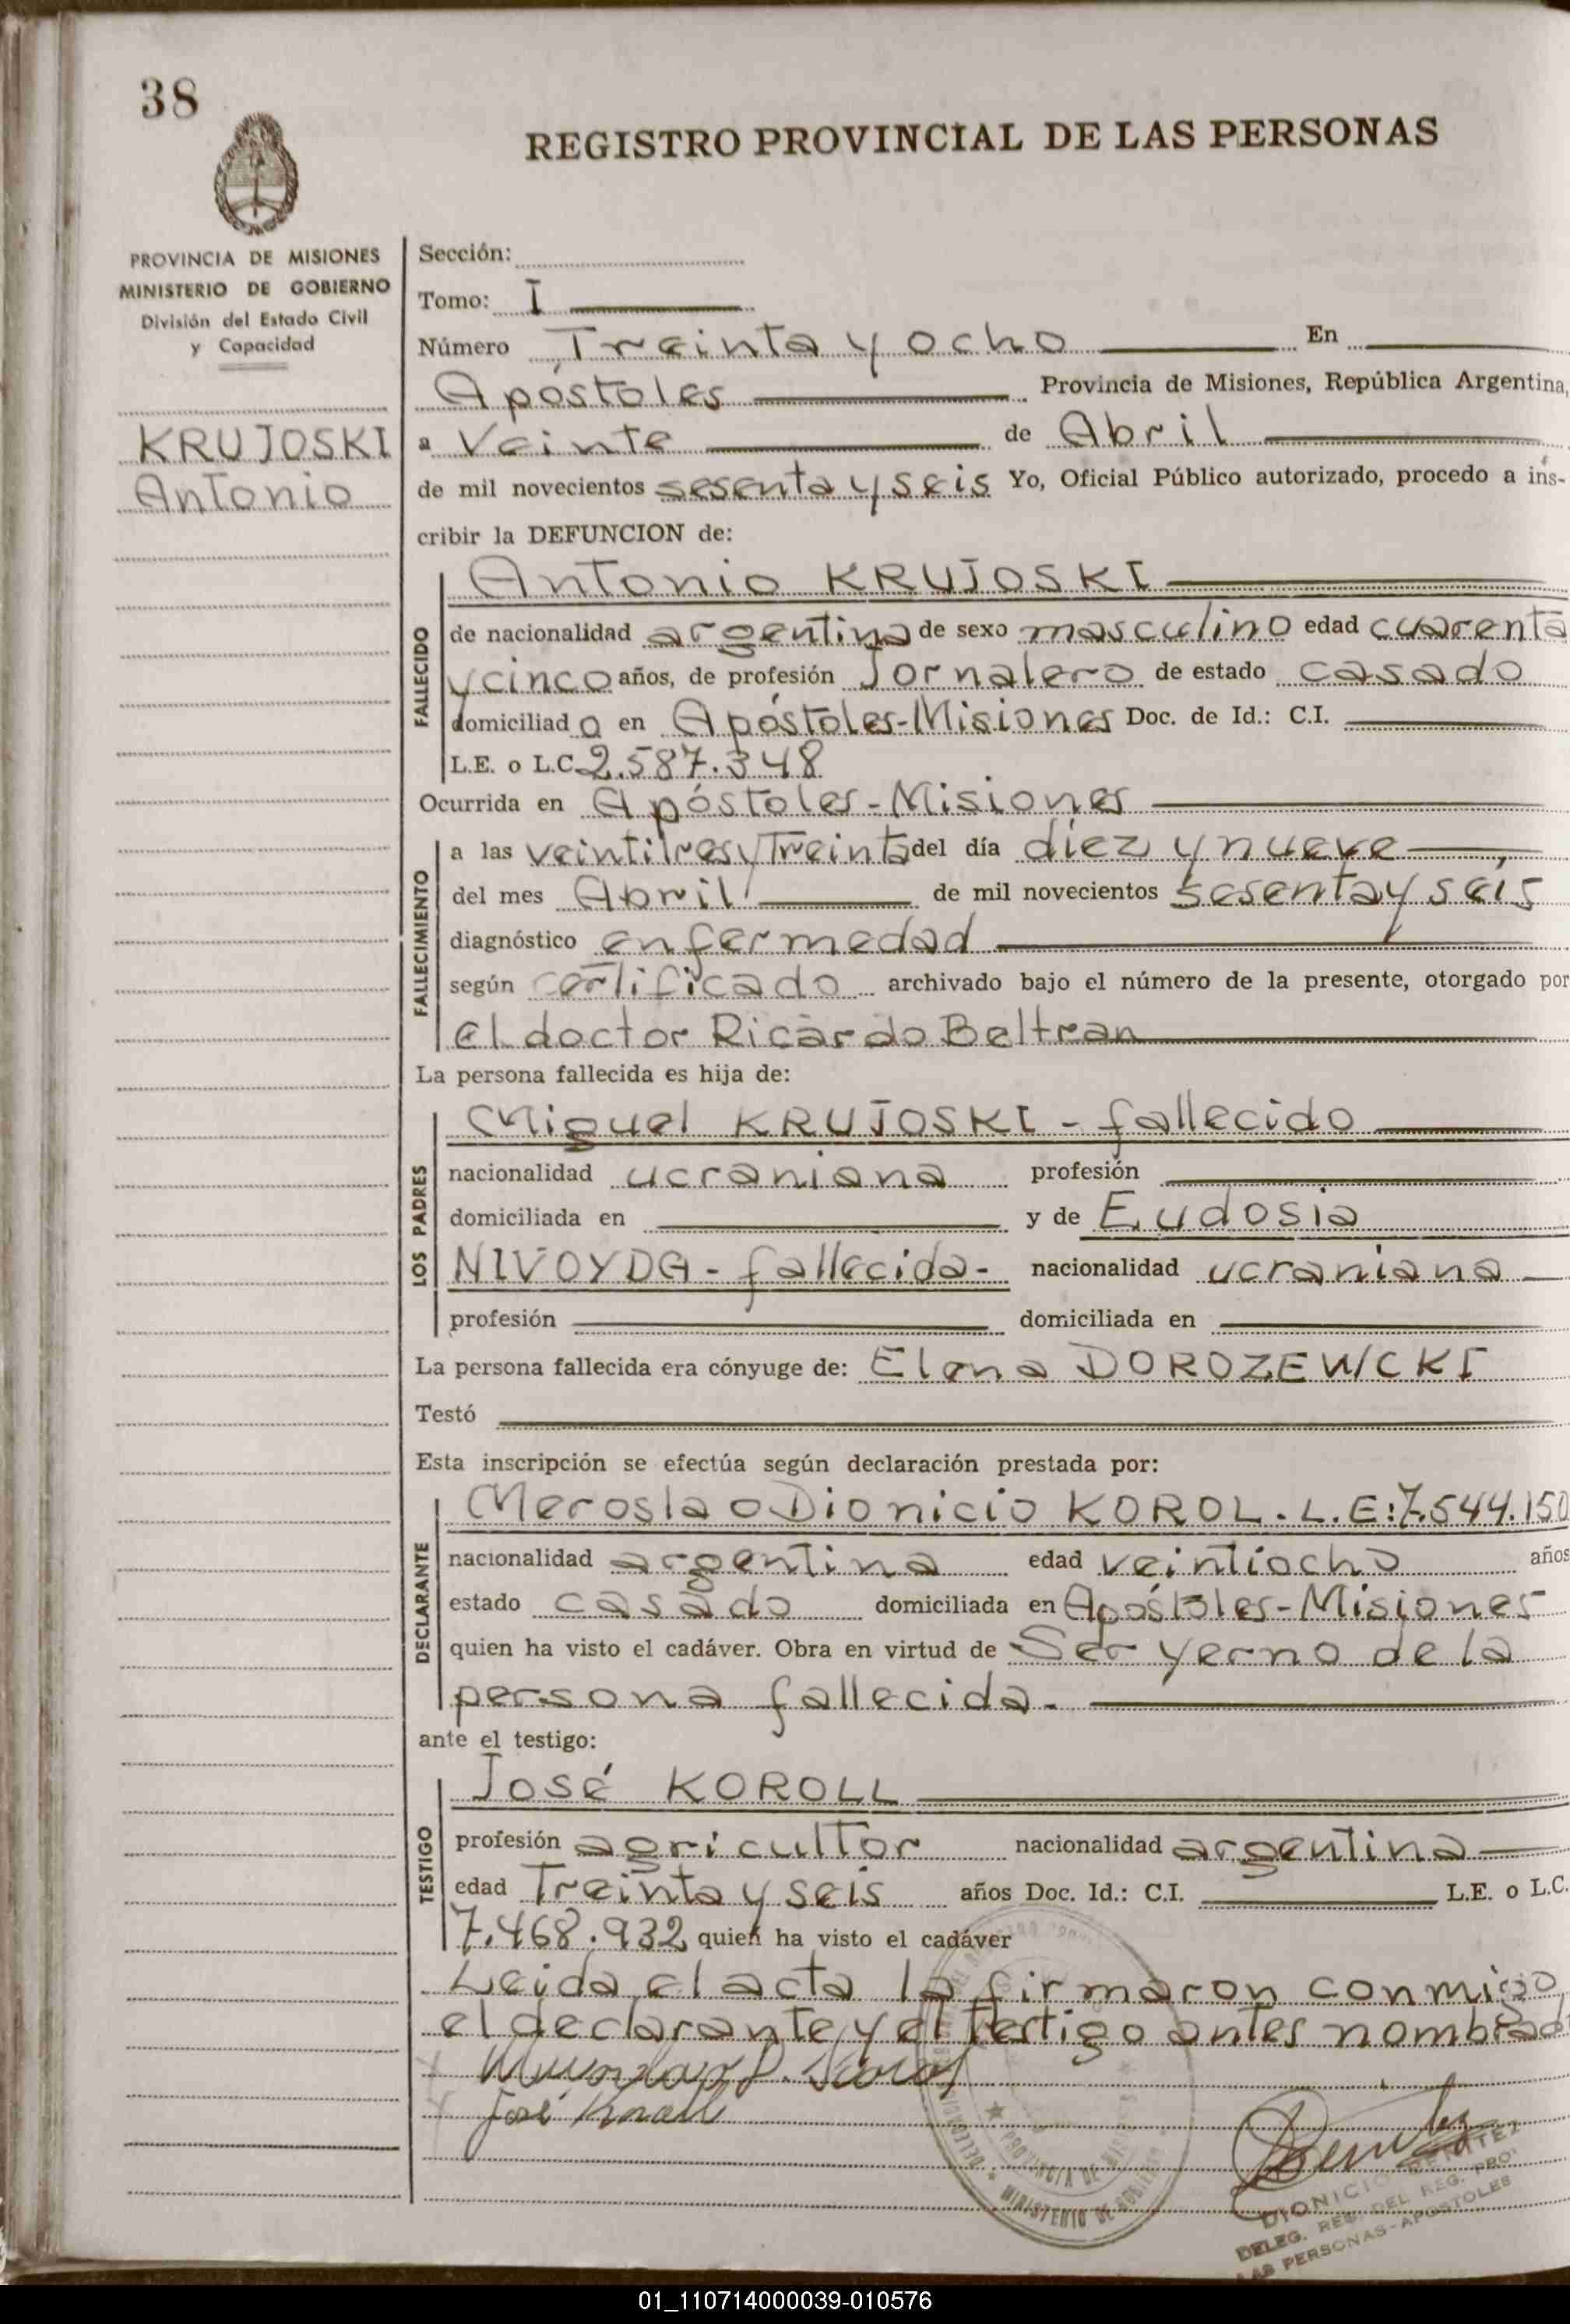 38
REGISTRO PROVINCIAL DE LAS PERSONAS
PROVINCIA DE MISIONES
MINISTERIO DE GOBIERNO
División del Estado Civil
y Capacidad
KRUJOSKI
Antonio
Sección:
Tomo: I
Número Treinta y ocho En
Apóstoles Provincia de Misiones, República Argentina,
a Veinte de Abril
de mil novecientos sesenta y seis Yo, Oficial Público autorizado, procedo a ins-
cribir la DEFUNCION de:
FALLECIDO
Antonio KRUJOSKI
de nacionalidad argentina de sexo masculino edad cuarenta
y cinco años, de profesión Jornalero de estado casado
domiciliado en Apóstoles-Misiones Doc. de Id.: C.I.
L.E. o L.C. 2.587.348
Ocurrida en Apóstoles-Misiones
FALLECIMIENTO
a las veintitres y Treinta del día diez y nueve
del mes Abril de mil novecientos sesenta y seis
diagnóstico enfermedad
según certificado archivado bajo el número de la presente, otorgado por
el doctor Ricardo Beltran
La persona fallecida es hija de:
LOS PADRES
Miguel KRUJOSKI - fallecido
nacionalidad ucraniana profesión
domiciliada en y de Eudosia
NIVOYDA - fallecida - nacionalidad ucraniana
profesión domiciliada en
La persona fallecida era cónyuge de: Elena DOROZEWCKI
Testó
Esta inscripción se efectúa según declaración prestada por:
DECLARANTE
Meroslao Dionicio KOROL. L.E: 7.544.150
nacionalidad argentina edad veintiocho años
estado casado domiciliada en Apóstoles-Misiones
quien ha visto el cadáver. Obra en virtud de Ser yerno de la
persona fallecida.
ante el testigo:
TESTIGO
José KOROLL
profesión agricultor nacionalidad argentina
edad Treinta y seis años Doc. Id.: C.I. L.E. o L.C.
7.468.932 quien ha visto el cadáver
Leida el acta la firmaron conmigo
el declarante y el Testigo antes nombrad
José
PROVINCIA DE
MINISTERIO DE
DIONICIO BENITEZ
DELEG. REG. DEL REG. PRO
LAS PERSONAS-APOSTOLES
01_110714000039-010576